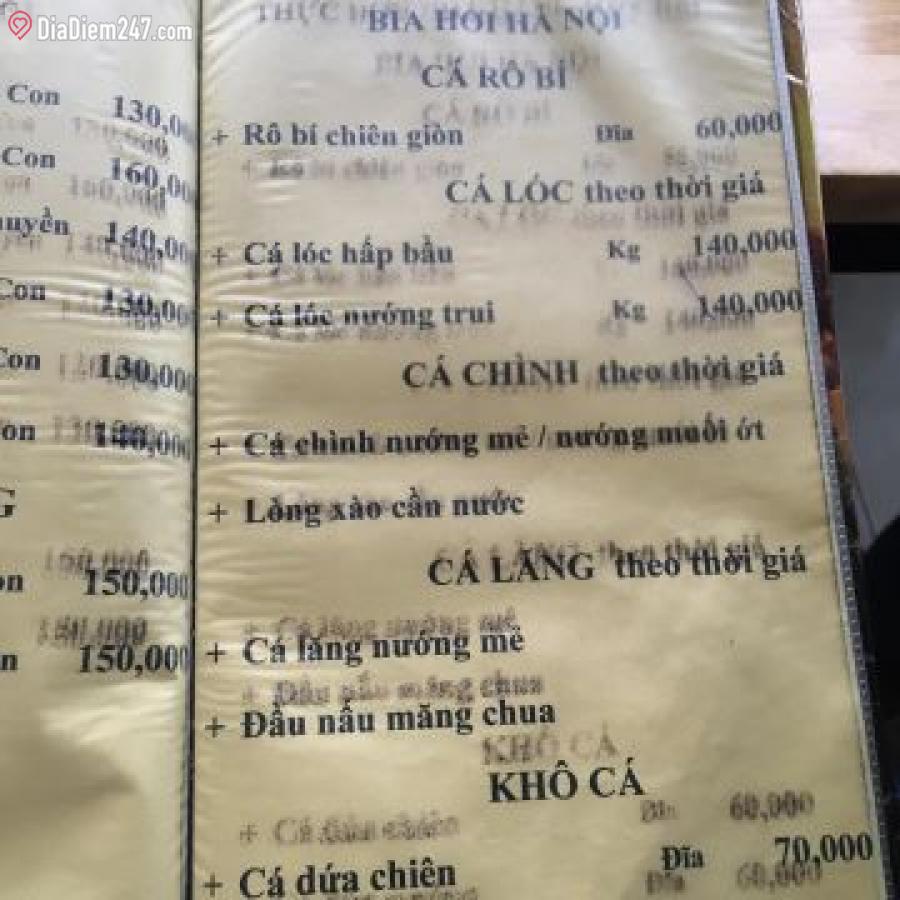 DiaDiem247.com
Con 130,0
Con 160,0
uyền 140,00
Con 130,00
Con 130,000
on 140,000
G
on 150,000
n 150,000
THỰC
BIA HƠI HÀ NỘI
CÁ RÔ BÍ
+ Rô bí chiên giòn Đĩa 60,000
CÁ LÓC theo thời giá
+ Cá lóc hấp bầu Kg 140,000
+ Cá lóc nướng trui Kg 140,000
CÁ CHÌNH theo thời giá
+ Cá chình nướng mẻ / nướng muối ớt
+ Lòng xào cần nước
CÁ LĂNG theo thời giá
+ Cá lăng nướng mẻ
+ Đầu nấu măng chua
KHÔ CÁ
+ Cá dứa chiên Đĩa 70,000